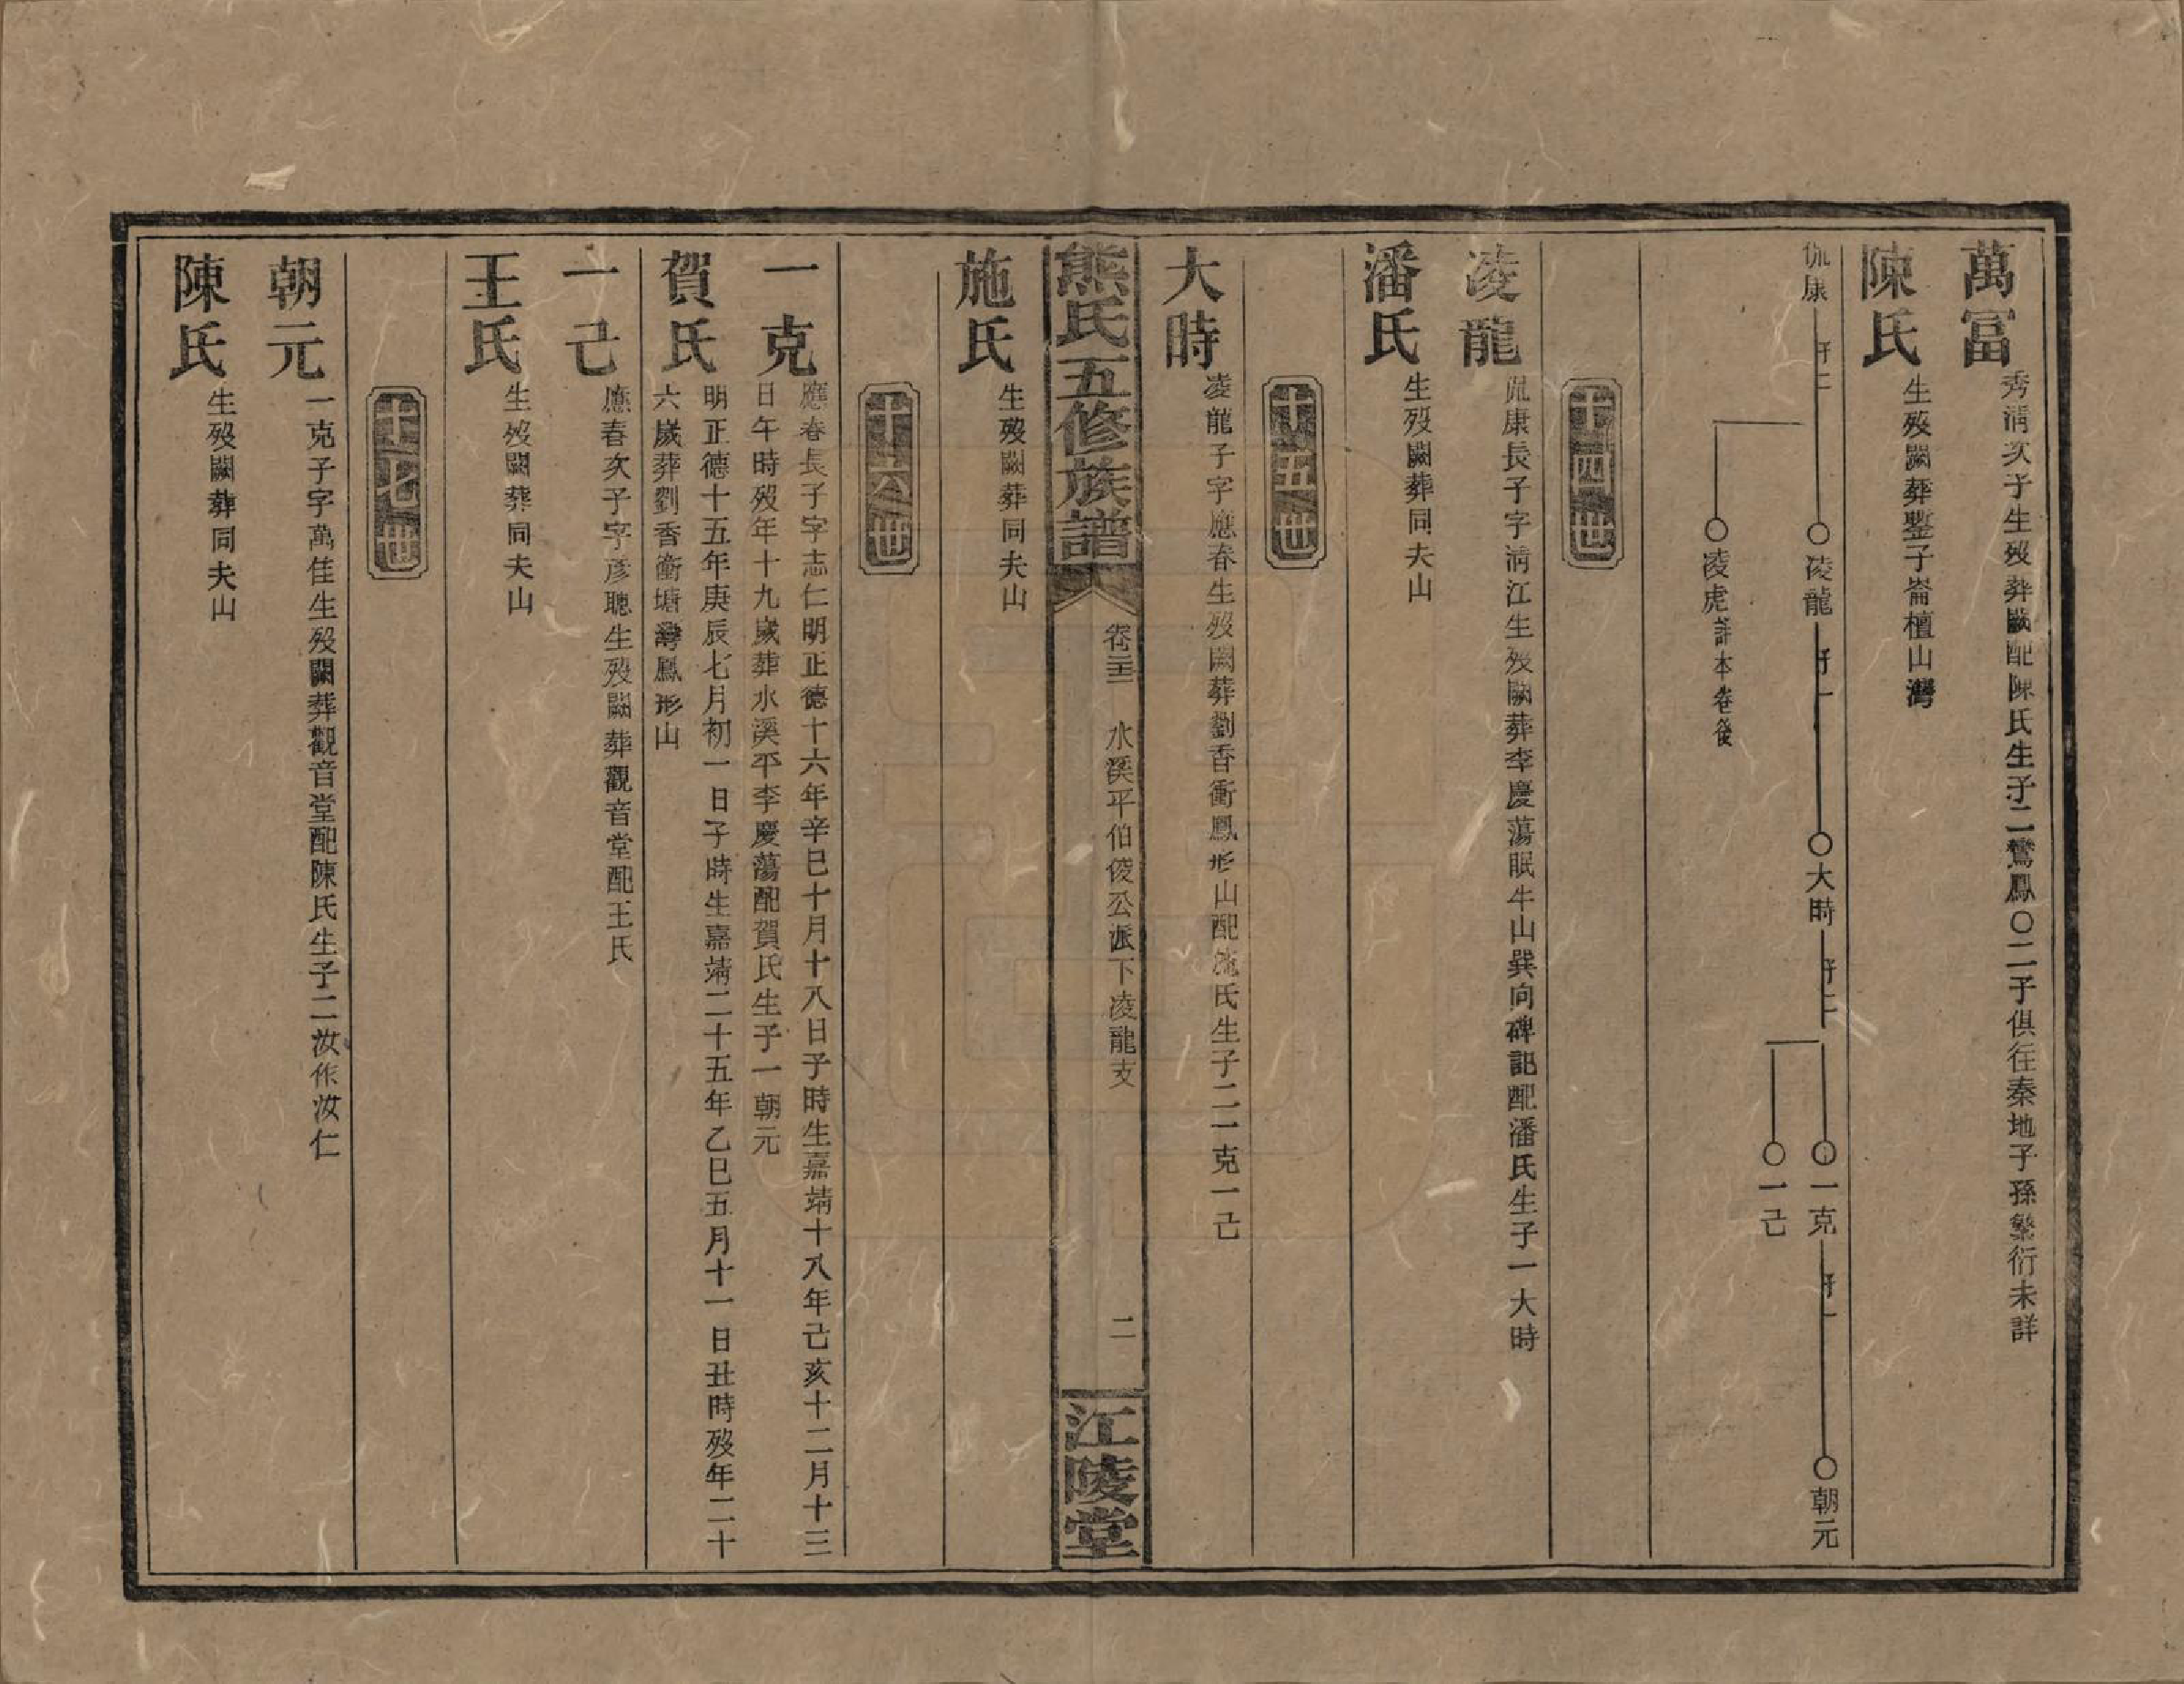 萬冨
秀淸次子生歿葬闕配陳氏生子二鸞鳳○二子俱往秦地子孫繁衍未詳
陳氏
生歿闕葬塹子崙檀山灣
侃康 子二 ○凌龍 子一 ○大時 子二 ○一克 子一 ○朝元
○一己
○凌虎詳本卷後
十四世
凌龍
侃康長子字淸江生歿闕葬李慶蕩眠牛山巽向碑記配潘氏生子一大時
潘氏
生歿闕葬同夫山
十五世
大時
凌龍子字應春生歿闕葬劉香衝鳳形山配施氏生子二一克一己
熊氏五修族譜
水溪平伯俊公派下凌龍支
二
江陵堂
施氏
生歿闕葬同夫山
十六世
一克
應春長子字志仁明正德十六年辛巳十月十八日子時生嘉靖十八年己亥十二月十三
日午時歿年十九歲葬水溪平李慶蕩配賀氏生子一朝元
賀氏
明正德十五年庚辰七月初一日子時生嘉靖二十五年乙巳五月十一日丑時歿年二十
六歲葬劉香衝塘灣鳳形山
一己
應春次子字彦聰生歿闕葬觀音堂配王氏
王氏
生歿闕葬同夫山
十七世
朝元
一克子字萬佳生歿闕葬觀音堂配陳氏生子二汝作汝仁
陳氏
生歿闕葬同夫山